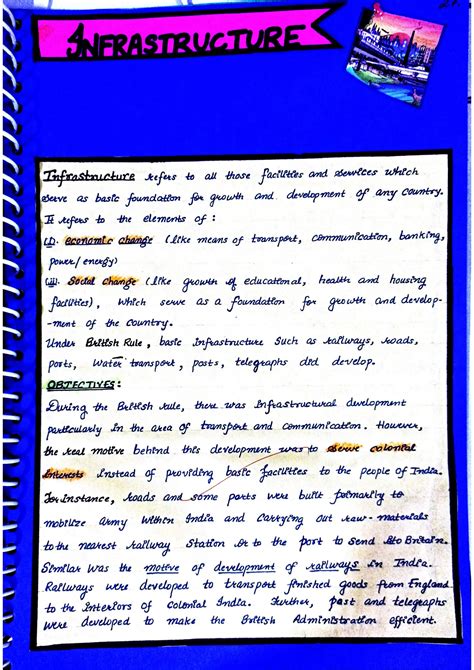 INFRASTRUCTURE
Infrastructure refers to all those facilities and services which
serve as basic foundation for growth and development of any country.
It refers to the elements of :
(i). economic change (like means of transport, communication, banking,
power/energy)
(ii) Social change (like growth of educational, health and housing
facilities), which serve as a foundation for growth and develop-
-ment of the country.
Under British Rule, basic infrastructure such as railways, roads,
ports, water transport, posts, telegraphs did develop.
OBJECTIVES:
During the British rule, there was infrastructural development
particularly in the area of transport and communication. However,
the real motive behind this development was to serve colonial
interests instead of providing basic facilities to the people of India.
For instance, roads and some ports were built primarily to
mobilize army within India and carrying out raw-materials
to the nearest railway station or to the port to send to Britain.
Similar was the motive of development of railways in India.
Railways were developed to transport finished goods from England
to the interiors of Colonial India. Further, post and telegraphs
were developed to make the British Administration efficient.